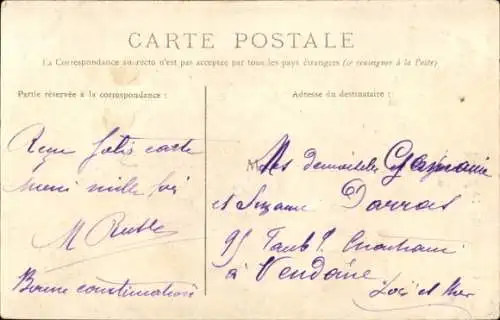 CARTE POSTALE
La Correspondance au recto n'est pas acceptée par tous les pays étrangers (se renseigner à la Poste)
Partie réservée à la correspondance :
Adresse du destinataire :
Reçu jolie carte
Merci mille fois
M
Bonne continuation
Mesdemoiselles Germaine
et Suzanne Darras
95 Faub^g Chartrain
à Vendôme
Loir et Cher